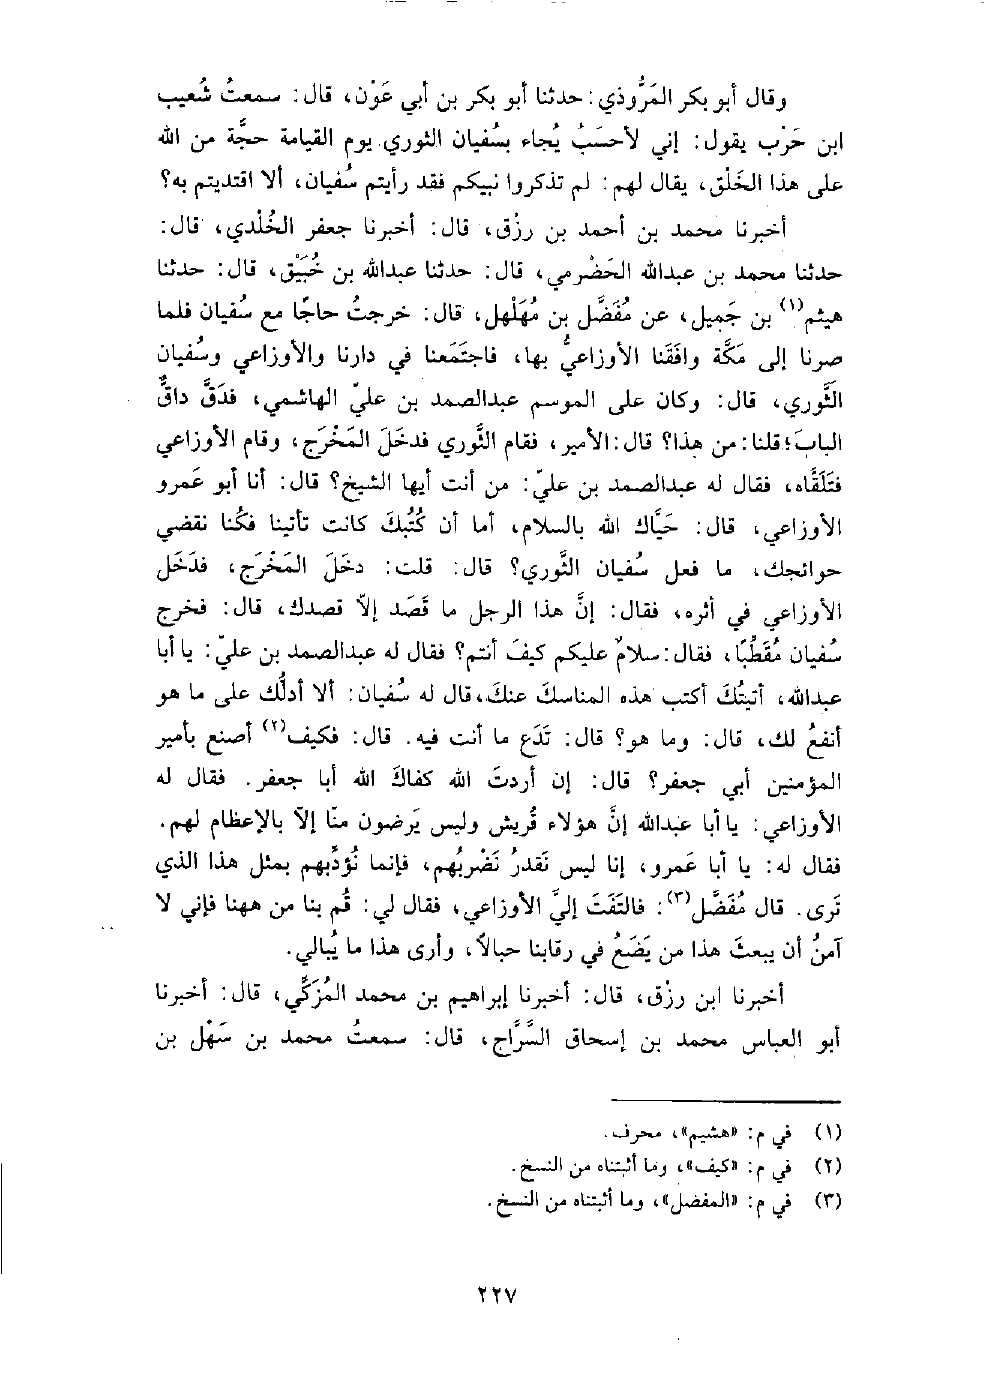 وقال أبو بكر المَرُّوذي: حدثنا أبو بكر بن أبي عَوْن، قال: سمعتُ شُعيب
ابن حَرْب يقول: إني لأحسَبُ يُجاء بسُفيان الثوري يوم القيامة حجَّة من الله
على هذا الخَلْق، يقال لهم: لم تذكروا نبيكم فقد رأيتم سُفيان، ألا اقتديتم به؟
أخبرنا محمد بن أحمد بن رزْق، قال: أخبرنا جعفر الخُلْدي، قال:
حدثنا محمد بن عبدالله الحَضْرمي، قال: حدثنا عبدالله بن خُبَيْق، قال: حدثنا
هيثم(١) بن جَميل، عن مُفَضَّل بن مُهَلْهل، قال: خرجتُ حاجًا مع سُفيان فلما
صرنا إلى مَكَّة وافَقَنا الأوزاعيُّ بها، فاجتَمَعنا في دارنا والأوزاعي وسُفيان
الثَّوري، قال: وكان على الموسم عبدالصمد بن عليّ الهاشمي، فدَقَّ داقٌّ
البابَ؛ قلنا: من هذا؟ قال: الأمير، فقام الثَّوري فدخَلَ المَخْرَج، وقام الأوزاعي
فتَلَقَّاه، فقال له عبدالصمد بن عليّ: من أنت أيها الشيخ؟ قال: أنا أبو عَمرو
الأوزاعي، قال: حَيَّاك الله بالسلام، أما أن كُتُبكَ كانت تأتينا فكُنا نقضي
حوائجك، ما فعل سُفيان الثَّوري؟ قال: قلت: دخَلَ المَخْرَج، فدَخَل
الأوزاعي في أثره، فقال: إنَّ هذا الرجل ما قَصَد إلاّ قصدك، قال: فخرج
سُفيان مُقَطِّبًا، فقال: سلامٌ عليكم كيفَ أنتم؟ فقال له عبدالصمد بن عليّ: يا أبا
عبدالله، أتيتُكَ أكتب هذه المناسكَ عنكَ، قال له سُفيان: ألا أدلُّك على ما هو
أنفعُ لك، قال: وما هو؟ قال: تَدَع ما أنت فيه. قال: فكيف(٢) أصنع بأمير
المؤمنين أبي جعفر؟ قال: إن أردتَ الله كفاكَ الله أبا جعفر. فقال له
الأوزاعي: يا أبا عبدالله إنَّ هؤلاء قُريش وليس يَرضون منّا إلاّ بالإعظام لهم.
فقال له: يا أبا عَمرو، إنا ليس نَقدرُ نَضْربُهم، فإنما نُؤدِّبهم بمثل هذا الذي
تَرى. قال مُفَضَّل(٣): فالتَفَتَ إليَّ الأوزاعي، فقال لي: قُم بنا من ههنا فإني لا
آمنُ أن يبعثَ هذا من يَضَعُ في رقابنا حبالاً، وأرى هذا ما يُبالي.
أخبرنا ابن رزْق، قال: أخبرنا إبراهيم بن محمد المُزَكِّي، قال: أخبرنا
أبو العباس محمد بن إسحاق السَّرَّاج، قال: سمعتُ محمد بن سَهْل بن
(١) في م: «هشيم»، محرف.
(٢) في م: «كيف»، وما أثبتناه من النسخ.
(٣) في م: «المفضل»، وما أثبتناه من النسخ.
٢٢٧